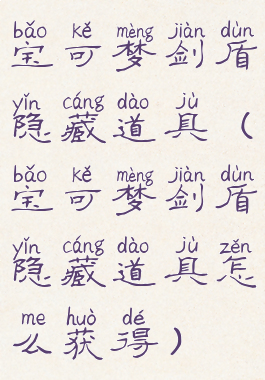 bǎo kě mèng jiàn dùn
宝可梦剑盾
yǐn cáng dào jù
隐藏道具（
bǎo kě mèng jiàn dùn
宝可梦剑盾
yǐn cáng dào jù zěn
隐藏道具怎
me huò dé
么获得）